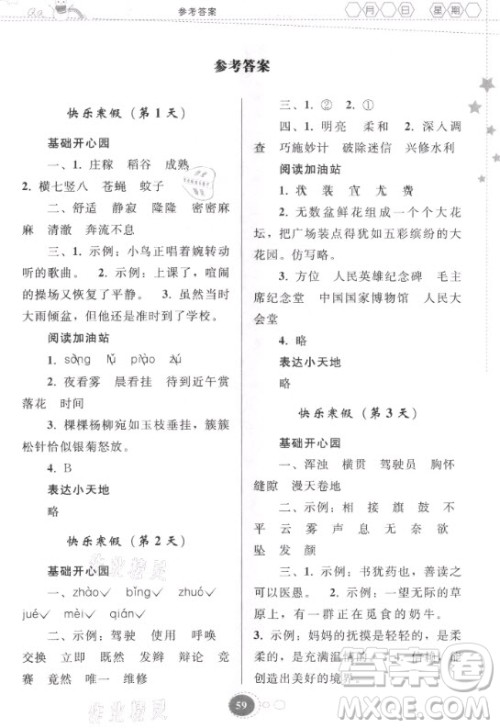 参考答案
月 日 星期
参考答案
快乐寒假（第1天）
基础开心园
一、1. 庄稼 稻谷 成熟
2. 横七竖八 苍蝇 蚊子
二、舒适 静寂 隆隆 密密麻
麻 清澈 奔流不息
三、1. 示例：小鸟正唱着婉转动
听的歌曲。 2. 示例：上课了，喧闹
的操场又恢复了平静。 3. 虽然当时
大雨倾盆，但他仍坚持到了学校。
阅读加油站
1. sòng piào zú
2. 夜看雾 晨看挂 待到近午赏
落花 时间
3. 棵棵杨柳宛如玉枝垂挂，簇簇
松针恰似银菊怒放。
4. B
表达小天地
略
快乐寒假（第2天）
基础开心园
一、zhào√ bǐng√ zhuó√
jué√ mèi√ qián√
二、示例：驾驶 使用 呼唤
交换 立即 既然 发辫 辩论 竞
赛 究竟 唯一 维修
三、1. ② 2. ①
四、1. 明亮 柔和 2. 深入调
查 巧施妙计 破除迷信 兴修水利
阅读加油站
1. 我 装 宜 尤 费
2. 无数盆鲜花组成一个大花
坛，把广场装点得犹如五彩缤纷的大
花园。仿写略。
3. 方位 人民英雄纪念碑 毛主
席纪念堂 中国国家博物馆 人民大
会堂
4. 略
表达小天地
略
快乐寒假（第3天）
基础开心园
一、浑浊 横贯 驾驶员 胸怀
缝隙 漫天卷地
二、示例：相 接 旗 旗 水
平 云 雾 声 无 奈 欲
坠 发 颜
三、1. 示例：书犹药也，善读之
可以医愚。 2. 示例：一望无际的草
原上，处处都是正在觅食的奶牛。
3. 示例：妈妈的抚摸是轻轻的、柔柔
的、暖暖的。 4. 示例：音乐家能
创造出美好的境界
59
作业精灵
作业精灵
答案圈
MXQE.COM